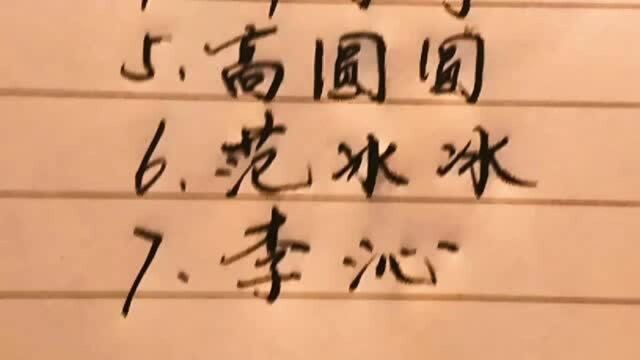 5.高圆圆
6.范冰冰
7.李沁